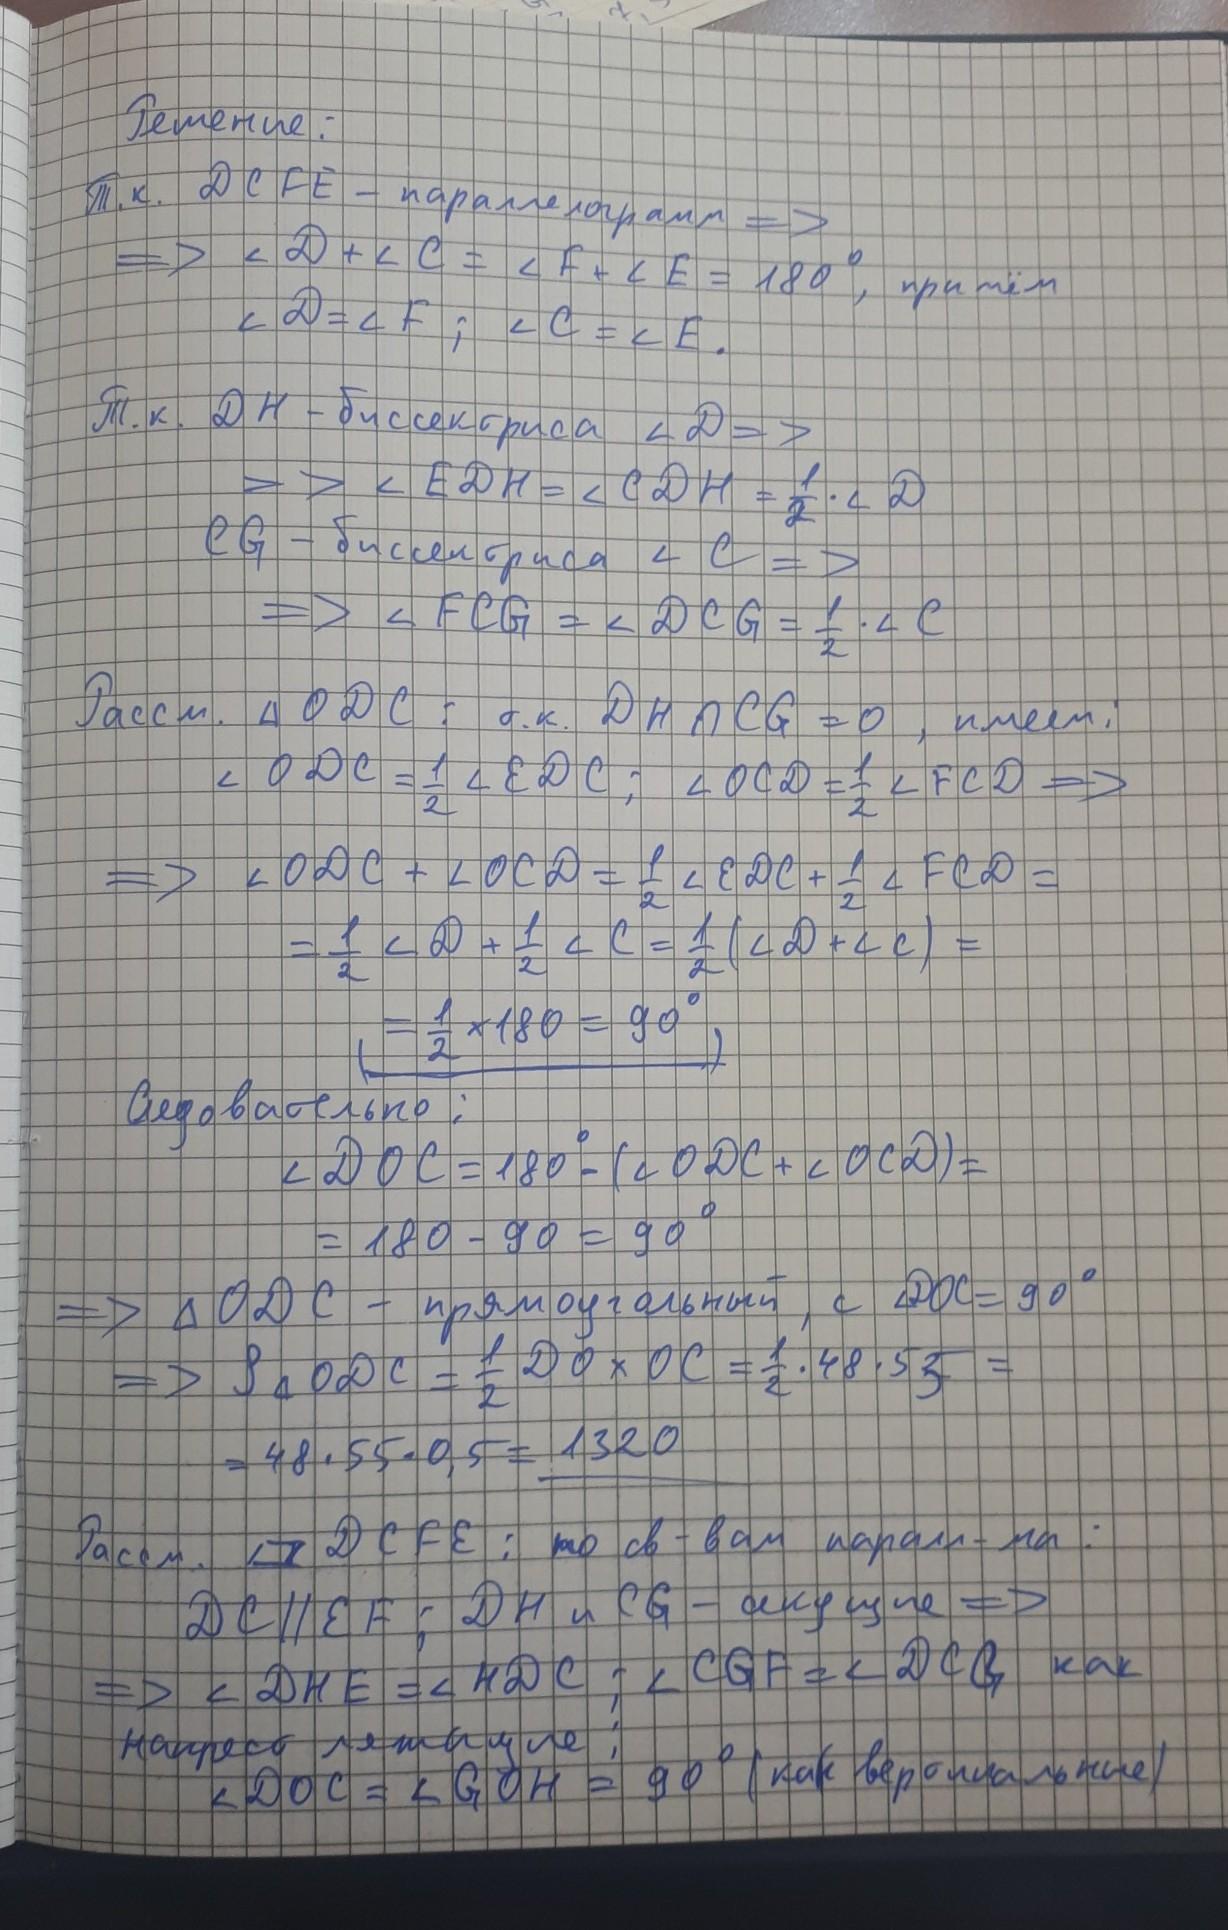 Решение:
Т.к. DCFE – параллелограмм =>
=> ∠D + ∠C = ∠F + ∠E = 180°, притём
∠D = ∠F ; ∠C = ∠E.
Т.к. DH – биссектриса ∠D =>
=> ∠EDH = ∠CDH = 1/2 · ∠D
CG – биссектриса ∠C =>
=> ∠FCG = ∠DCG = 1/2 · ∠C
Рассм. △ODC : т.к. DH ∩ CG = O , имеем:
∠ODC = 1/2 ∠EDC ; ∠OCD = 1/2 ∠FCD =>
=> ∠ODC + ∠OCD = 1/2 ∠EDC + 1/2 ∠FCD =
= 1/2 ∠D + 1/2 ∠C = 1/2 (∠D + ∠C) =
= 1/2 × 180 = 90°
Следовательно:
∠DOC = 180° - (∠ODC + ∠OCD) =
= 180 - 90 = 90°
=> △ODC – прямоугольный, с ∠DOC = 90°
=> S△ODC = 1/2 DO × OC = 1/2 · 48 · 55 =
= 48 · 55 · 0,5 = 1320
Рассм. DCFE ; по св-вам парал-ма :
DC || EF ; DH и CG – секущие =>
=> ∠DHE = ∠HDC ; ∠CGF = ∠DCG как
накрест лежащие ;
∠DOC = ∠GOH = 90° (как вертикальные)